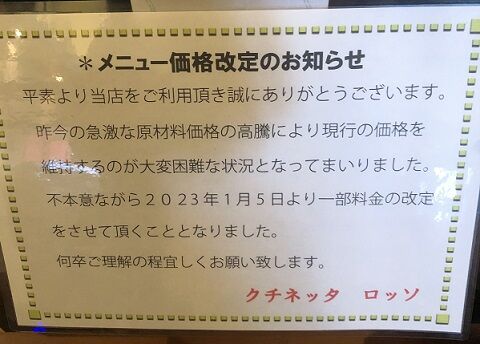 ＊メニュー価格改定のお知らせ
平素より当店をご利用頂き誠にありがとうございます。
昨今の急激な原材料価格の高騰により現行の価格を
維持するのが大変困難な状況となってまいりました。
不本意ながら２０２３年１月５日より一部料金の改定
をさせて頂くこととなりました。
何卒ご理解の程宜しくお願い致します。
クチネッタ　ロッソ